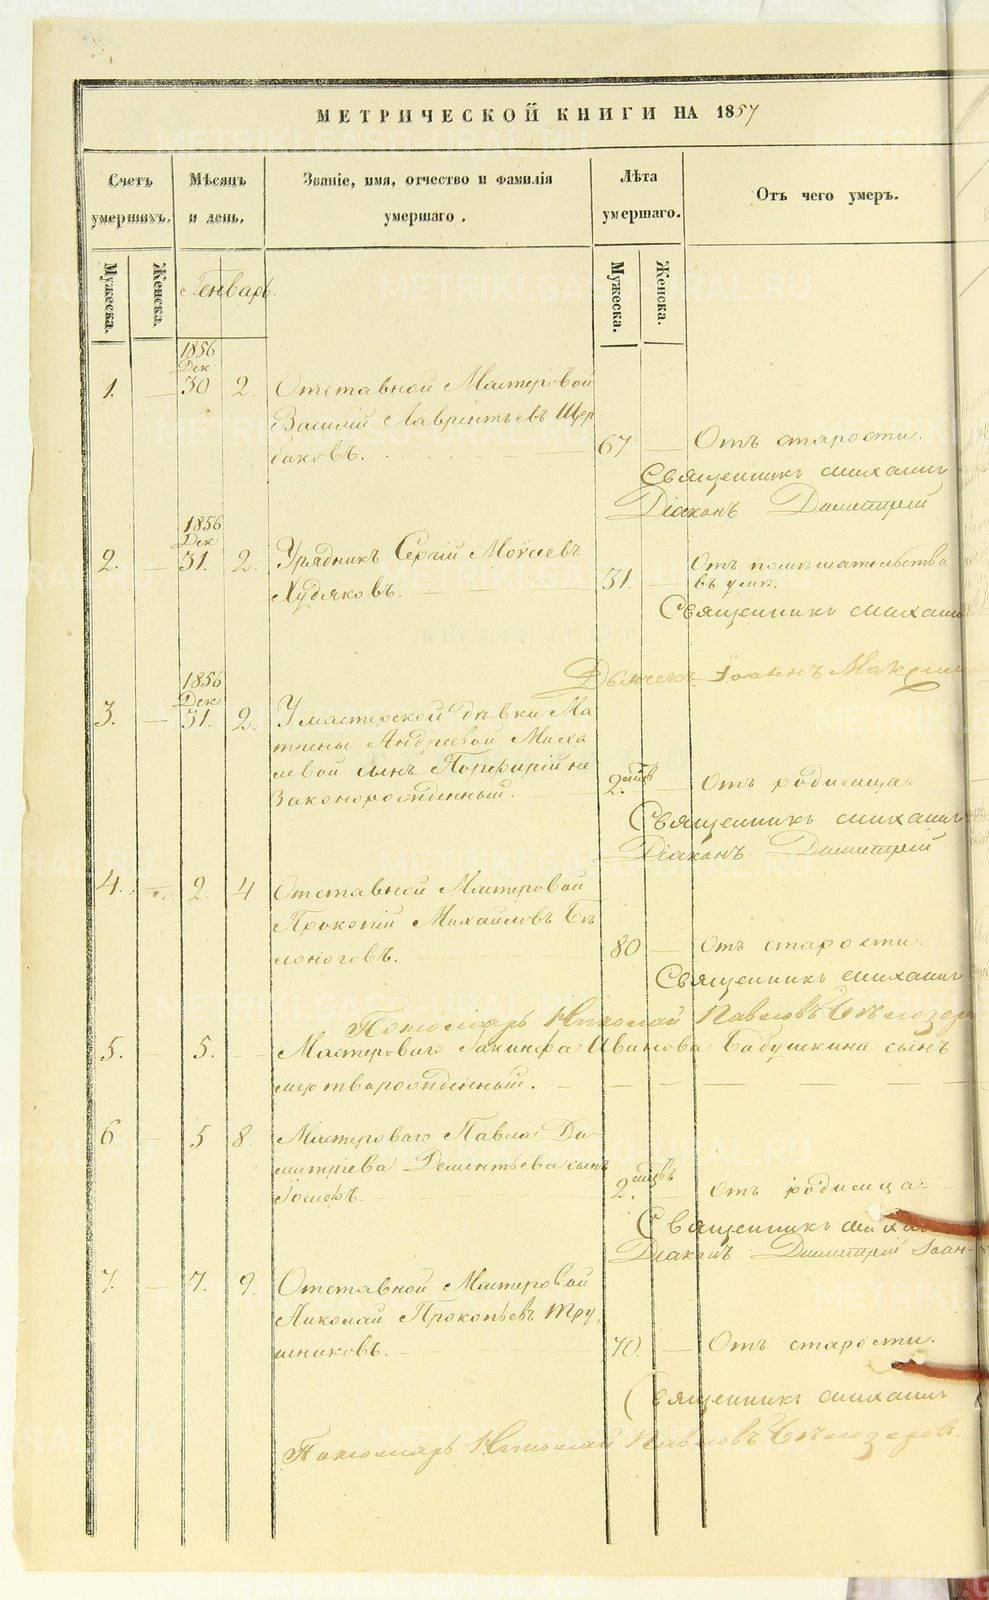 МЕТРИЧЕСКОЙ КНИГИ НА 1857
Счетъ умершихъ.
Мѣсяцъ и день.
Званіе, имя, отчество и фамилія умершаго.
Лѣта умершаго.
Отъ чего умеръ.
Мужеска.
Женска.
Генварь.
Мужеска.
Женска.
1856
Дек
1. — 30 2. Отставной Мастеровой
Василій Лаврентьевъ Щер
баковъ.
67. — Отъ старости.
Священникъ Михаилъ
Діаконъ Димитрій
1856
Дек
2. — 31. 2. Урядникъ Сергій Моѵсеевъ
Худяковъ.
31. — Отъ помѣшательства
въ умѣ.
Священникъ Михаилъ
Дьячекъ Іоаннъ
1856
Дек
3. — 31. 2. У мастерской дѣвки Ма
трены Андреевой Миха
левой сынъ Порфирій не
законорожденный.
2. мѣсяцъ — Отъ родимца.
Священникъ Михаилъ
Діаконъ Димитрій
4. — 2. 4. Отставной Мастеровой
Прокопій Михайловъ Бѣ
лоноговъ.
80 — Отъ старости.
Священникъ Михаилъ
Пономарь Николай Павловъ Бѣлозеро
5. 5. — Мастероваго Іакинфа Иванова Бабушкина сынъ
мертворожденный.
6 — 5 8. Мастероваго Павла Ди-
митріева Дементьева сынъ
Іосифъ.
2. мѣсяцъ — Отъ родимца.
Священникъ Михаилъ
Діаконъ Димитрій Іоан-
7. — 7. 9. Отставной Мастеровой
Николай Прокопьевъ Тру
шниковъ.
70. — Отъ старости.
Священникъ Михаилъ
Пономарь Николай Павловъ Бѣлозеровъ.